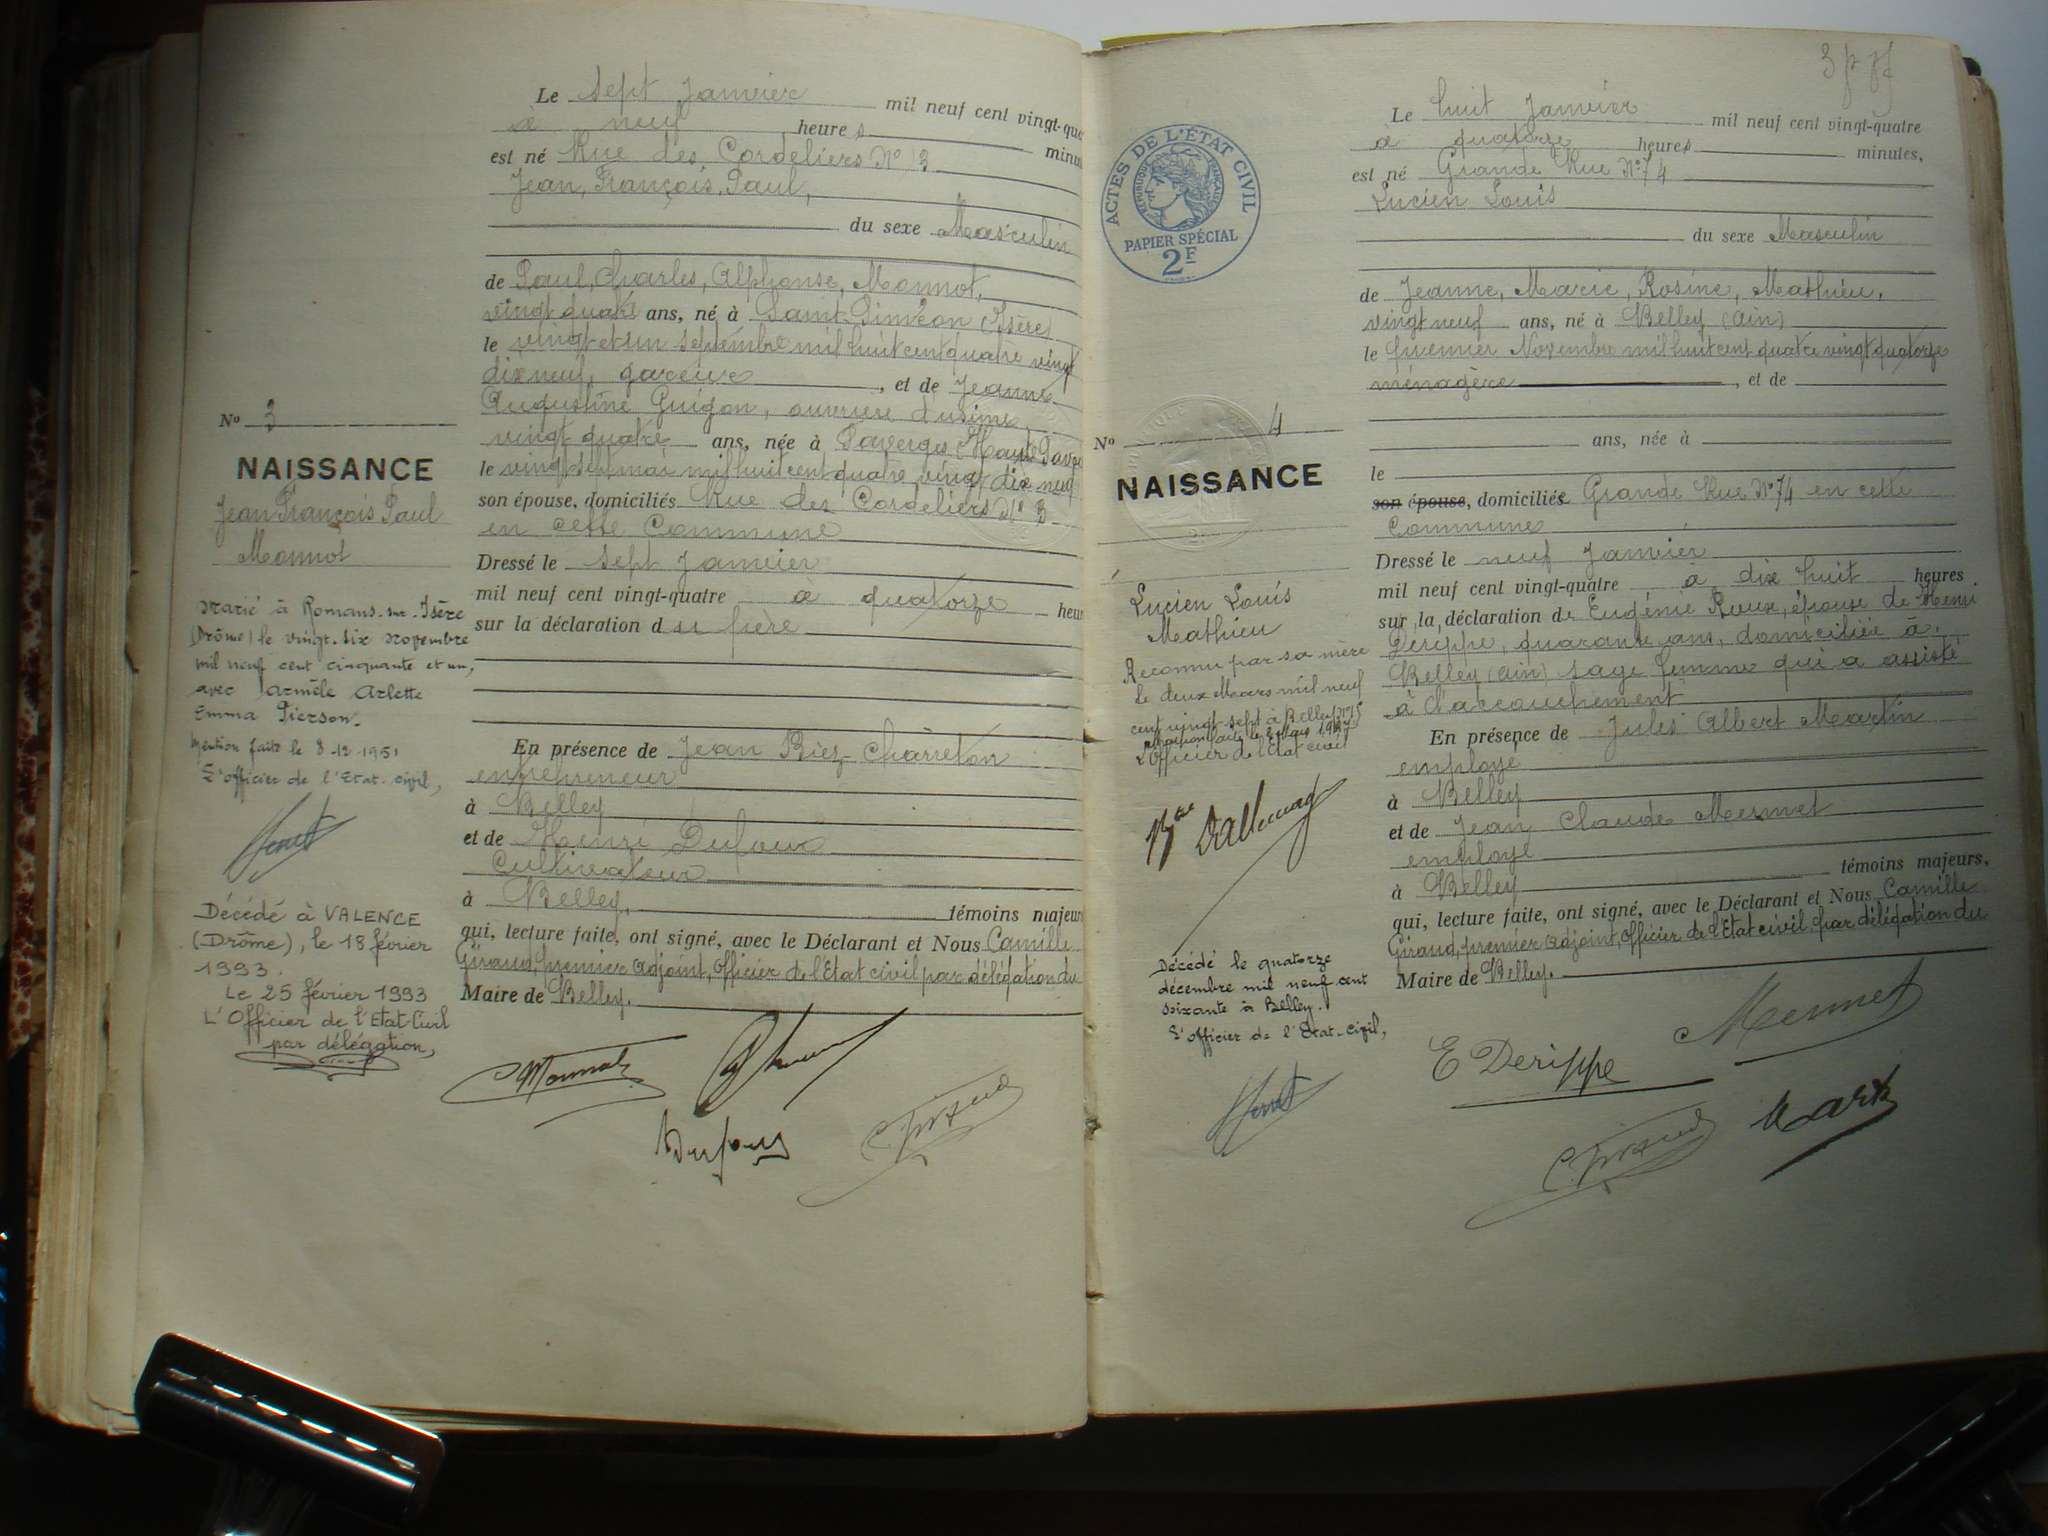 Le sept Janvier mil neuf cent vingt-qua
à neuf heures minutes
est né Rue des Cordeliers N° 3
Jean, François, Paul,
du sexe Masculin
de Paul, Charles, Alphonse, Monnot,
vingt quatre ans, né à Saint-Siméon (Isère)
le vingt et un septembre mil huit cent quatre vingt
dix neuf, gareur, et de Jeanne
Augustine Guigon, ouvrière d'usine
vingt quatre ans, née à Faverges (Haute Savoie
le vingt sept mai mil huit cent quatre vingt dix neuf
son épouse, domiciliés Rue des Cordeliers N° 3
en cette Commune
Dressé le sept Janvier
mil neuf cent vingt-quatre à quatorze heur
sur la déclaration du père
En présence de Jean Riez-Charreton
entrepreneur
à Belley
et de Henri Dufour
Cultivateur
à Belley, témoins majeurs
qui, lecture faite, ont signé, avec le Déclarant et Nous Camille
Giraud, premier adjoint, officier de l'Etat civil par délégation du
Maire de Belley.
N° 3
NAISSANCE
Jean François Paul
Monnot
Marié à Romans-sur-Isère
(Drôme) le vingt-six novembre
mil neuf cent cinquante et un,
avec Armèle Arlette
Emma Pierson.
Mention faite le 8-12-1951
L'officier de l'Etat-civil,
Décédé à VALENCE
(Drôme), le 18 février
1993.
Le 25 février 1993
L'Officier de l'Etat-Civil
par délégation,
Monnot
Dufour
C. Giraud
ACTES DE L'ÉTAT CIVIL
RÉPUBLIQUE FRANÇAISE
PAPIER SPÉCIAL
2F
Le huit Janvier mil neuf cent vingt-quatre
à quatorze heures minutes,
est né Grande Rue N° 74
Lucien Louis
du sexe Masculin
de Jeanne, Marie, Rosine, Mathieu,
vingt neuf ans, né à Belley (Ain)
le premier Novembre mil huit cent quatre vingt quatorze
ménagère, et de
ans, née à
le
son épouse, domiciliée Grande Rue N° 74 en cette
Commune
Dressé le neuf Janvier
mil neuf cent vingt-quatre à dix huit heures
sur la déclaration de Eugénie Roux, épouse de Henri
Derippe, quarante ans, domiciliée à
Belley (Ain) sage femme qui a assisté
à l'accouchement
En présence de Jules Albert Martin
employé
à Belley
et de Jean Claude Mermet
employé
à Belley témoins majeurs,
qui, lecture faite, ont signé, avec le Déclarant et Nous Camille
Giraud, premier adjoint, officier de l'Etat civil, par délégation du
Maire de Belley.
N° 4
NAISSANCE
Lucien Louis
Mathieu
Reconnu par sa mère
le deux Mars mil neuf
cent vingt-sept à Belley N° 15
L'Officier de l'Etat civil
Décédé le quatorze
décembre mil neuf cent
soixante à Belley.
L'officier de l'Etat-civil,
E Derippe
Mermet
C. Giraud
Martin